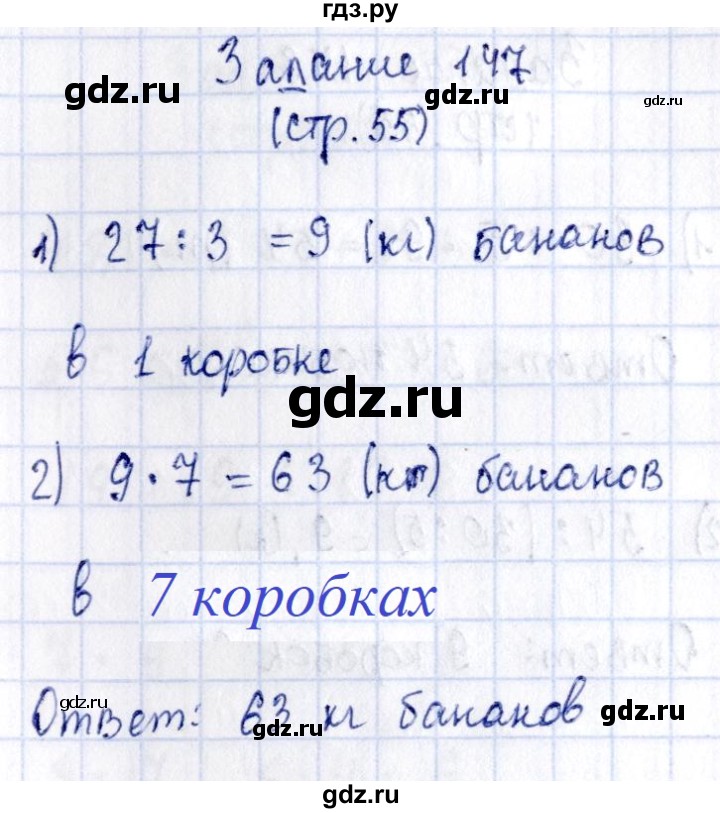 гдз.ру
Задание 147
gdz.ru gdz.ru gdz.ru
(стр. 55)
1) 27 : 3 = 9 (кг) бананов
в 1 коробке
gdz.ru
2) 9 · 7 = 63 (кг) бананов
в 7 коробках
gdz.ru
Ответ: 63 кг бананов
gdz.ru gdz.ru
gdz.ru